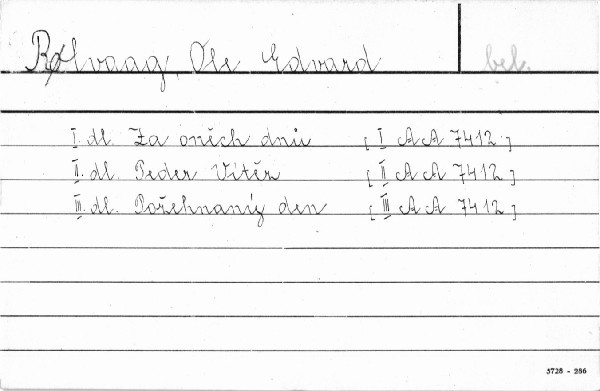 Rølvaag, Ole Edvard bel.
I. dl. Za oněch dnů [I AA 7412]
II. dl. Peder Vítěz [II AA 7412]
III. dl. Požehnaný den [III AA 7412]
5728 - 286